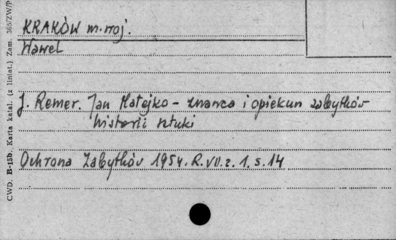 KRAKÓW m. woj.
Wawel
J. Remer. Jan Matejko - znawca i opiekun zabytków
historii sztuki
Ochrona Zabytków 1954. R. VII. z. 1. s. 14
CWD. B-15b. Karta katal. (z liniat.) Zam.